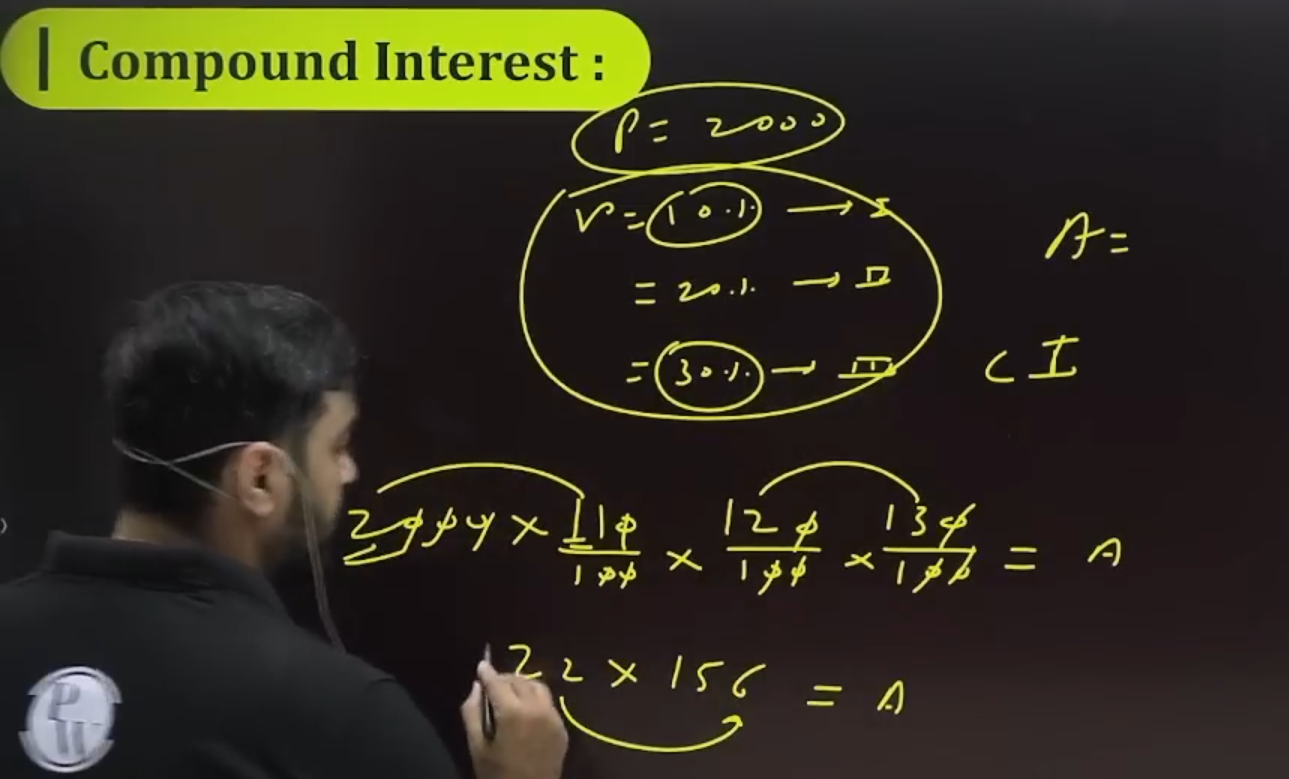 Compound Interest :
P = 2000
r = 10% → I
= 20% → II
= 30% → III
A =
CI
2000 × 110/100 × 120/100 × 130/100 = A
22 × 156 = A
PW